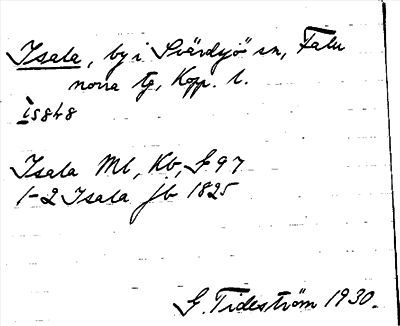 Isala, by i Svärdsjö sn, Falu
norra tg, Kopp. l.
Isala Ml, Kb, G 97
1-2 Isala Jb 1825
G. Tideström 1930.